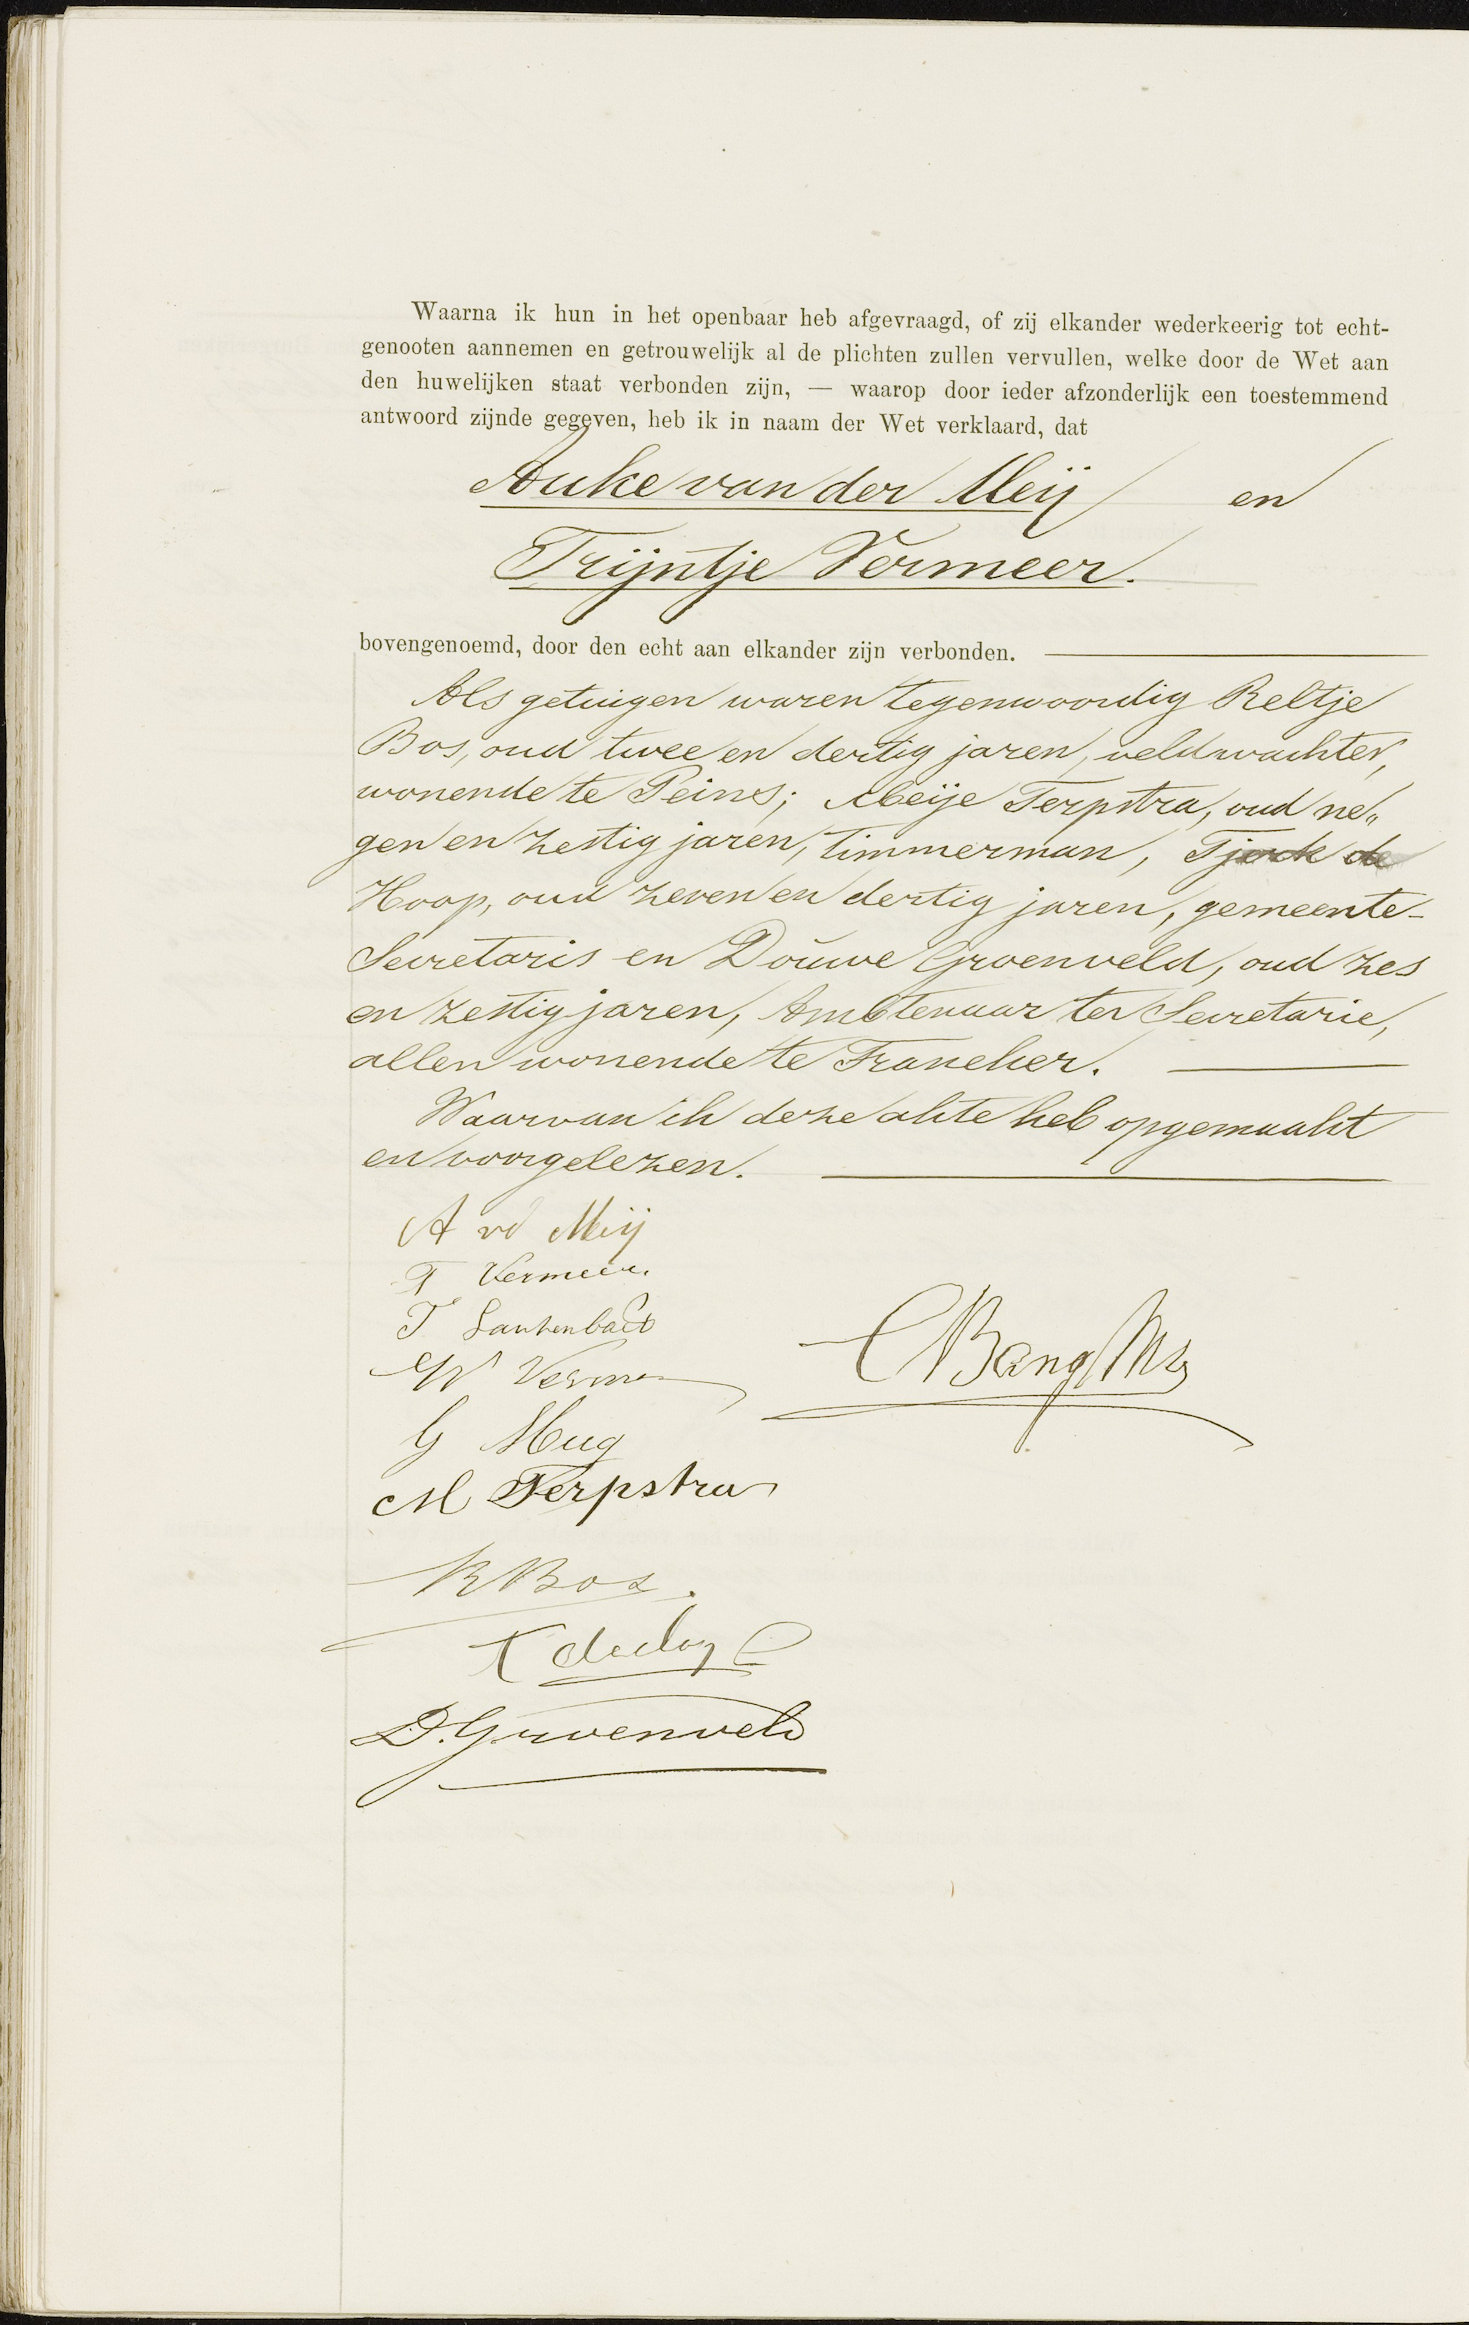 Waarna ik hun in het openbaar heb afgevraagd, of zij elkander wederkeerig tot echt-
genooten aannemen en getrouwelijk al de plichten zullen vervullen, welke door de Wet aan
den huwelijken staat verbonden zijn, — waarop door ieder afzonderlijk een toestemmend
antwoord zijnde gegeven, heb ik in naam der Wet verklaard, dat
Auke van der Meij en
Trijntje Vermeer.
bovengenoemd, door den echt aan elkander zijn verbonden.
Als getuigen waren tegenwoordig Reltje
Bos, oud twee en dertig jaren, veldwachter,
wonende te Peins; Meije Terpstra, oud ne„
gen en zestig jaren, timmerman, Tjerk de
Hoop, oud zeven en dertig jaren, gemeente-
Secretaris en Douwe Groenveld, oud zes
en zestig jaren, Ambtenaar ter Secretarie,
allen wonende te Franeker.
Waarvan ik deze akte heb opgemaakt
en voorgelezen.
A vd Meij
T Vermeer.
T Lautenbach
W Vermeer
CBang
G Mug
M Terpstra
R Bos.
T de Hoop
D. Groenveld